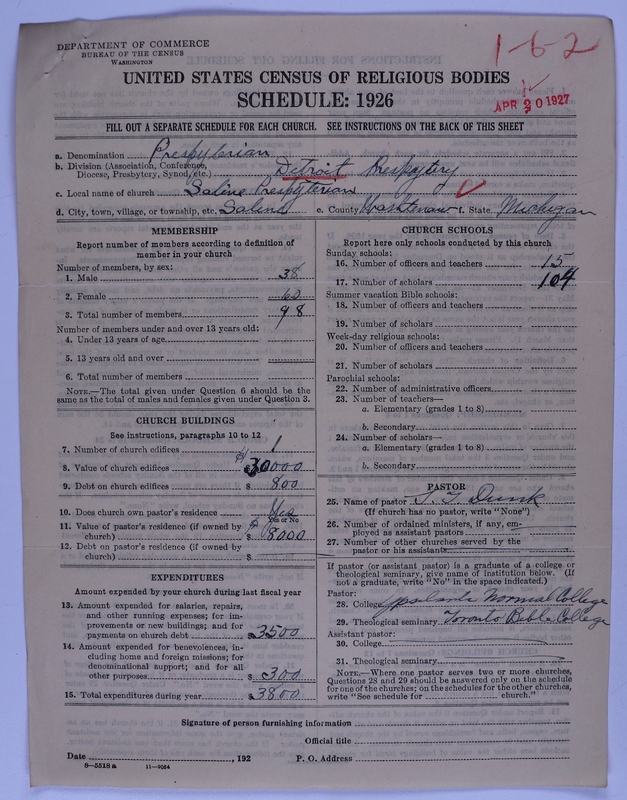 DEPARTMENT OF COMMERCE
BUREAU OF THE CENSUS
WASHINGTON
1-6-2
UNITED STATES CENSUS OF RELIGIOUS BODIES
SCHEDULE: 1926
APR 20 1927
FILL OUT A SEPARATE SCHEDULE FOR EACH CHURCH. SEE INSTRUCTIONS ON THE BACK OF THIS SHEET
a. Denomination Presbyterian
b. Division (Association, Conference,
Diocese, Presbytery, Synod, etc.) Detroit Presbytery
c. Local name of church Saline Presbyterian
d. City, town, village, or township, etc. Saline e. County Washtenaw f. State Michigan
MEMBERSHIP
Report number of members according to definition of
member in your church
Number of members, by sex:
1. Male 38
2. Female 60
3. Total number of members 98
Number of members under and over 13 years old:
4. Under 13 years of age
5. 13 years old and over
6. Total number of members
NOTE.—The total given under Question 6 should be the
same as the total of males and females given under Question 3.
CHURCH BUILDINGS
See instructions, paragraphs 10 to 12
7. Number of church edifices 1
8. Value of church edifices $ 30000
9. Debt on church edifices $ 800
10. Does church own pastor's residence Yes
Yes or No
11. Value of pastor's residence (if owned by
church) $ 8000
12. Debt on pastor's residence (if owned by
church) $
EXPENDITURES
Amount expended by your church during last fiscal year
13. Amount expended for salaries, repairs,
and other running expenses; for im-
provements or new buildings; and for
payments on church debt $ 3500
14. Amount expended for benevolences, in-
cluding home and foreign missions; for
denominational support; and for all
other purposes $ 300
15. Total expenditures during year $ 3800
CHURCH SCHOOLS
Report here only schools conducted by this church
Sunday schools:
16. Number of officers and teachers 15
17. Number of scholars 104
Summer vacation Bible schools:
18. Number of officers and teachers
19. Number of scholars
Week-day religious schools:
20. Number of officers and teachers
21. Number of scholars
Parochial schools:
22. Number of administrative officers
23. Number of teachers—
a. Elementary (grades 1 to 8)
b. Secondary
24. Number of scholars—
a. Elementary (grades 1 to 8)
b. Secondary
PASTOR
25. Name of pastor Dunk
(If church has no pastor, write "None")
26. Number of ordained ministers, if any, em-
ployed as assistant pastors
27. Number of other churches served by the
pastor or his assistants
If pastor (or assistant pastor) is a graduate of a college or
theological seminary, give name of institution below. (If
not a graduate, write "No" in the space indicated.)
Pastor:
28. College Ypsilanti Normal College
29. Theological seminary Toronto Bible College
Assistant pastor:
30. College
31. Theological seminary
NOTE.—Where one pastor serves two or more churches,
Questions 28 and 29 should be answered only on the schedule
for one of the churches; on the schedules for the other churches,
write "See schedule for church."
Signature of person furnishing information
Official title
Date , 192 P. O. Address
8-5518a 11-9054